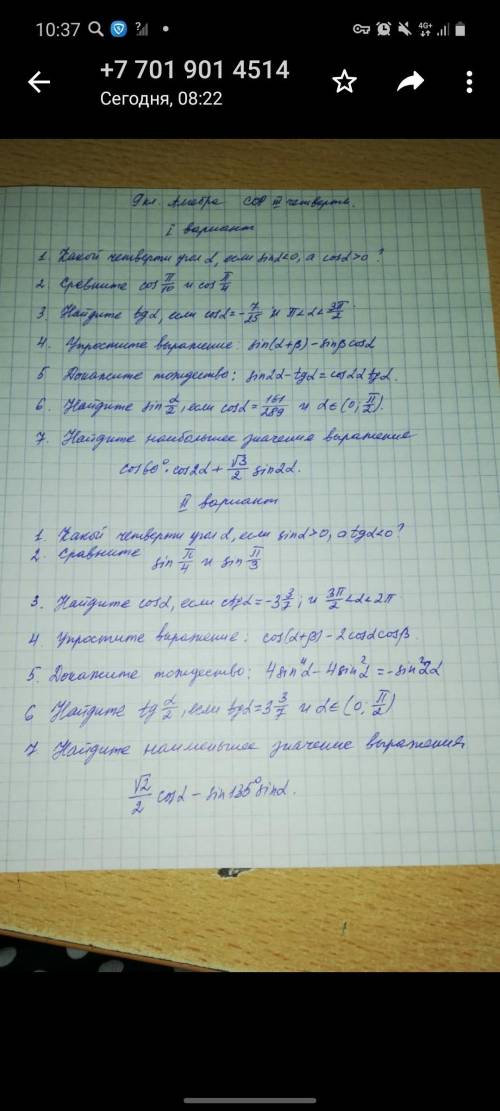 10:37
4G+
+7 701 901 4514
Сегодня, 08:22
9 кл. Алгебра СОР III четверть.
I вариант
1. Какой четверти угол α, если sinα<0, а cosα>0?
2. Сравните cos π/10 и cos π/4
3. Найдите tgα, если cosα=-7/25 и π<α<3π/2.
4. Упростите выражение: sin(α+β)-sinβcosα
5 Докажите тождество: sin2α-tgα=cos2α tgα.
6. Найдите sin α/2, если cosα=161/289 и α∈(0; π/2).
7. Найдите наибольшее значение выражение
cos60°·cos2α+√3/2 sin2α.
II вариант
1. Какой четверти угол α, если sinα>0, а tgα<0?
2. Сравните sin π/4 и sin π/3
3. Найдите cosα, если ctgα=-3 3/7; и 3π/2<α<2π
4 Упростите выражение: cos(α+β)-2cosαcosβ.
5. Докажите тождество: 4sin⁴α-4sin²α=-sin²2α
6 Найдите tg α/2, если tgα=3 3/7 и α∈(0; π/2)
7 Найдите наименьшее значение выражения
√2/2 cosα-sin135°sinα.